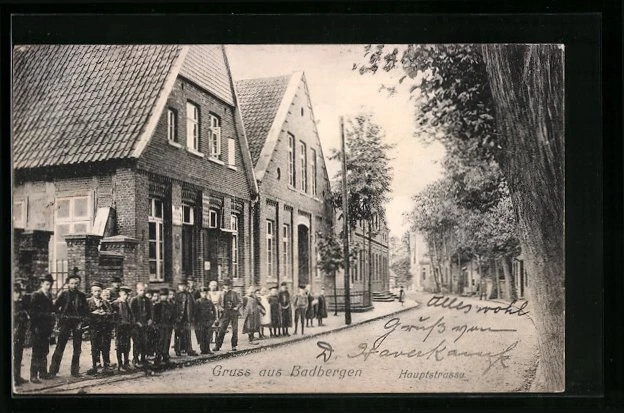 Alles wohl
Gruß von
D. Haverkamp
Gruss aus Badbergen
Hauptstrasse.